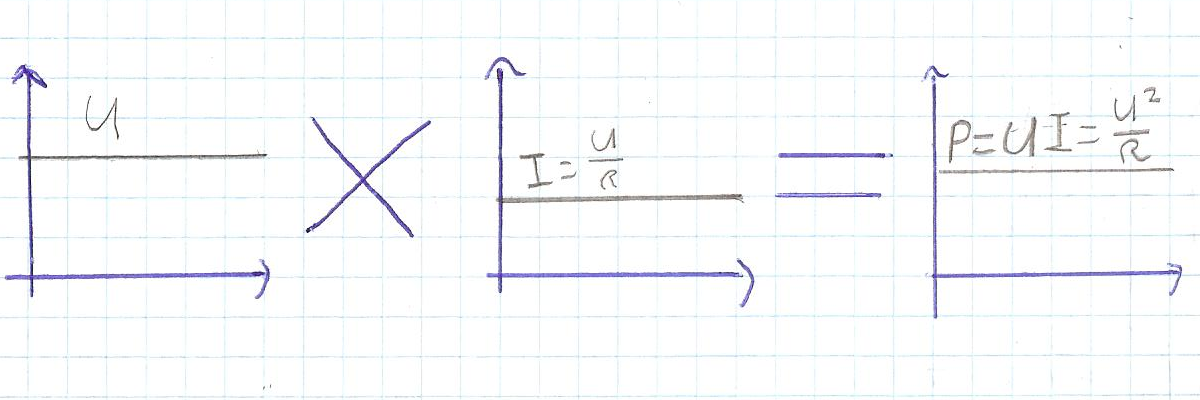 U
I = U/R
P = U I = U²/R